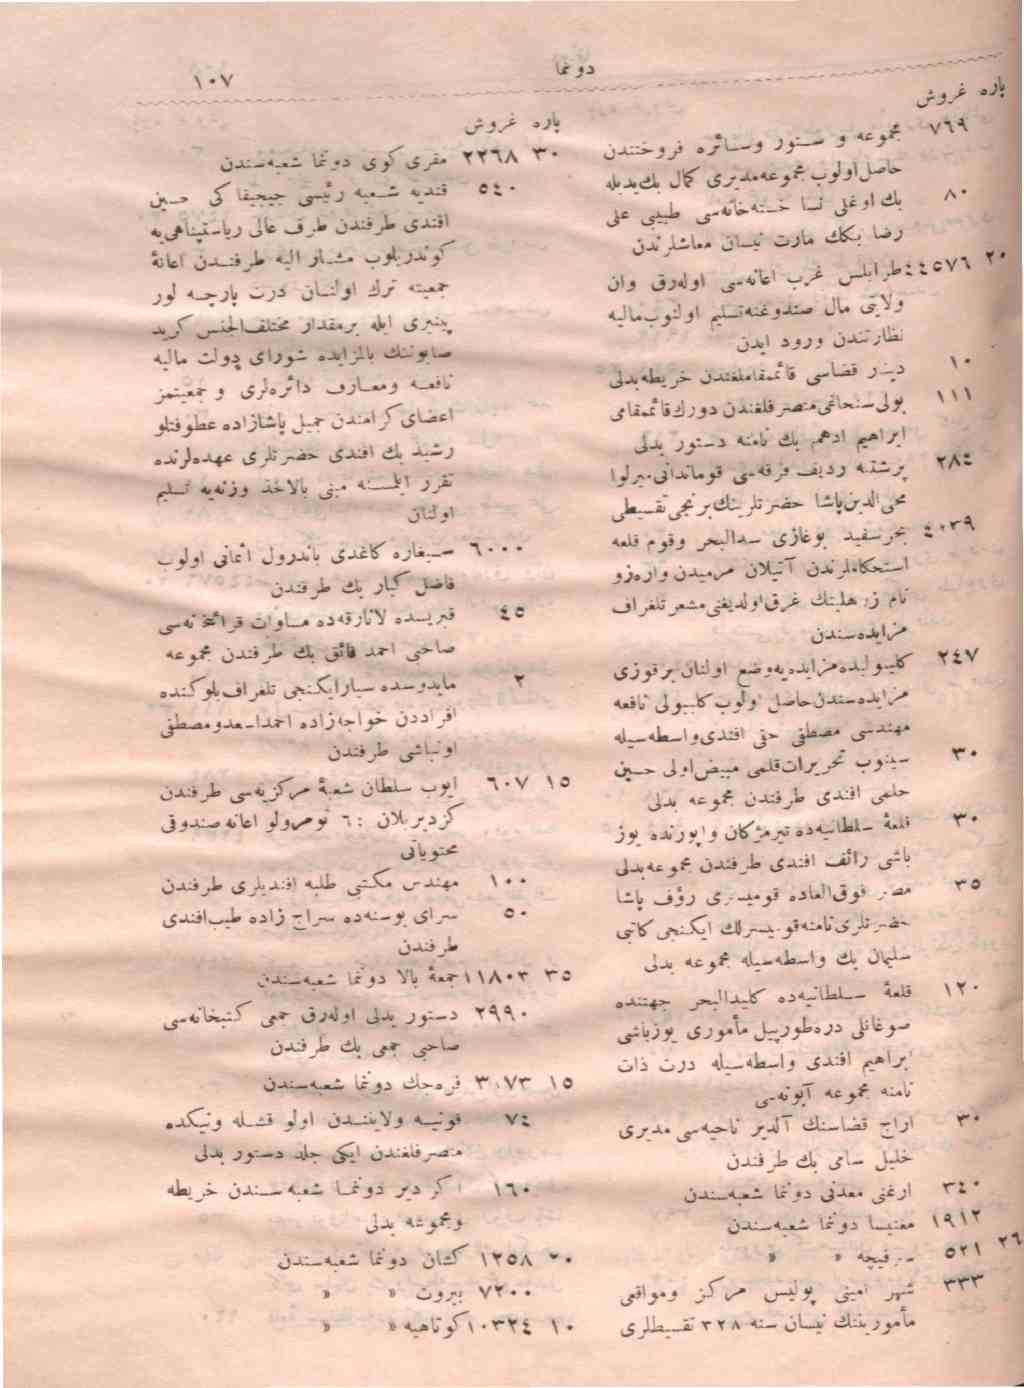 دونما
١٠٧
پاره غروش
٧٦٩ مجموعه و دستور وسائره فروختندن
حاصل اولوب مجموعه مديرى كمال بك يديله
٨٠ بك اوغلى نسا خسته خانه‌سى طبيبى على
رضا بكك مارت نيسان معاشلرندن
٢٠ ٤٤٥٧٦ طرابلس غرب اعانه‌سى اوله‌رق وان
ولايتى مال صندوغنه تسليم اولنوب ماليه
نظارتندن ورود ايدن
١٠ قضاسى قائممقاملغندن خريطه بدلى
١١١ بولى سنجاغى متصرفلغندن دورك قائممقامى
ابراهيم ادهم بك نامنه دستور بدلى
٢٨٤ پرشتنه رديف فرقه‌سى قوماندانى ميرلوا
محى الدين پاشا حضرتلرينك برنجى تقسيطى
٤٠٣٩ بحرسفيد بوغازى سدالبحر وقوم قلعه
استحكاملرندن آتيلان مرميدن وارزو
نام زرهلينك غرق اولديغنى مشعر تلغراف
مزايده‌سندن
٢٤٧ كليبولیده مزايده‌يه وضع اولنان بر قوزى
مزايده‌سندن حاصل اولوب كليبولى نافعه
مهندسى مصطفى حقى افندى واسطه‌سيله
٣٠ سينوب تحريرات قلمى مبيض اولى حسين
حلمى افندى طرفندن مجموعه بدلى
٣٠ قلعهٔ سلطانيه‌ده تيرمژكان واپورنده يوز
باشى رائف افندى طرفندن مجموعه بدلى
٣٥ مصر فوق العاده قوميسرى رؤف پاشا
حضرتلرى نامنه قوميسرلك ايكنجى كاتبى
سليمان بك واسطه‌سيله مجموعه بدلى
١٢٠ قلعهٔ سلطانيه‌ده كليدالبحر جهتنده
صوغانلى دره طورپيل مأمورى يوزباشى
ابراهيم افندى واسطه‌سيله درت ذات
نامنه مجموعه آبونه‌سى
٣٠ اراج قضاسنك ناحيه‌سى مديرى
خليل سامى بك طرفندن
٣٤٠ ارغنى معدنى دونما شعبه‌سندن
١٩١٢ مغنيسا دونما شعبه‌سندن
٢٦ ٥٢١ سرفيچه » »
٣٣٣ شهر امينى پوليس مركز ومواقعى
مأمورينك نيسان سنه ٣٢٨ تقسيطلرى
پاره غروش
٣٠ ٢٢٦٨ مقرى كوى دونما شعبه‌سندن
٥٤٠ قنديه شعبه رئيسى كى حسين
افندى طرفندن طرف عالى رياستپناهى‌يه
كوندريلوب مشار اليه طرفندن اعانهٔ
جمعيته ترك اولنان درت پارچه لور
پينيرى ايله برمقدار مختلف الجنس كريد
صابوننك بالمزايده شوراى دولت ماليه
نافعه ومعارف دائره‌لرى و جمعيتمز
اعضاى كرامندن جميل پاشازاده عطوفتلو
رشيد بك افندى حضرتلرى عهده‌لرنده
تقرر ايلمسنه مبنى بالاخذ وزنه‌يه تسليم
اولنان
٦٠٠٠ سيغاره كاغدى باندرول اثمانى اولوب
فاضل كبار بك طرفندن
٤٥ قبريسده لارناقه‌ده مساوات قرائتخانه‌سى
صاحبى احمد فائق بك طرفندن مجموعه
٢ مايدوسده سيار ايكنجى تلغراف بلوكنده
افراددن خواجه‌زاده احمد اسعد و مصطفى
اونباشى طرفندن
١٥ ٦٠٧ ايوب سلطان شعبهٔ مركزيه‌سى طرفندن
كزديريلان ٦ نومرولو اعانه صندوقى
محتوياتى
١٠٠ مهندس مكتبى طلبه افنديلرى طرفندن
٥٠ سراى بوسنه‌ده سراج زاده طيب افندى
طرفندن
٣٥ ١١٨٠٣ جمعهٔ بالا دونما شعبه‌سندن
٢٩٩٠ دستور بدلى اوله‌رق جمعى كتبخانه‌سى
صاحبى جمعى بك طرفندن
١٥ ٣٠٧٣ قره‌جك دونما شعبه‌سندن
٧٤ قونيه ولايتندن اولو قشله ونيكده
متصرفلغندن ايكى جلد دستور بدلى
١٦٠ اكردير دونما شعبه‌سندن خريطه
ومجموعه بدلى
٢٠ ١٢٥٨ كشان دونما شعبه‌سندن
٧٢٠٠ بيروت » »
١٠ ١٠٣٢٤ كوتاهيه » »